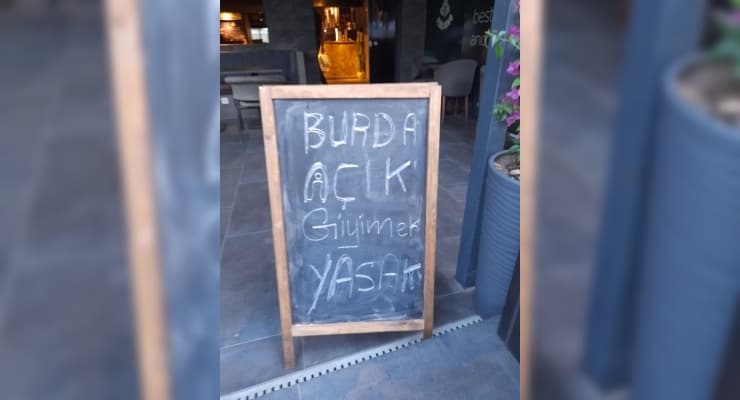 best
and
BURDA
AÇIK
Giyimek
YASAK